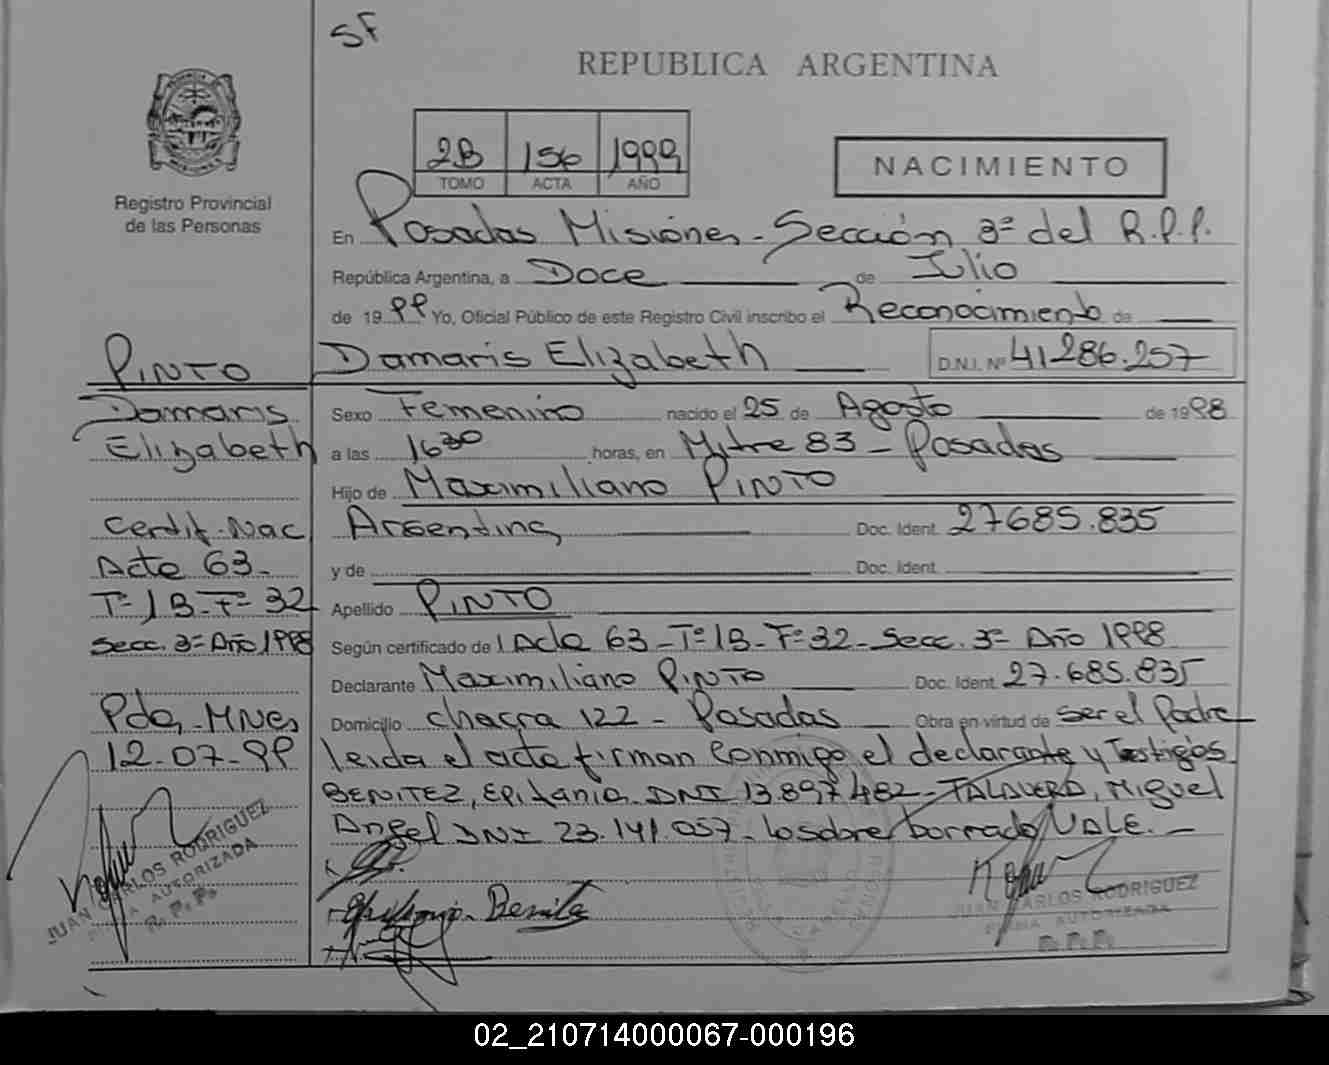 SF
REPUBLICA ARGENTINA
2B 156 1999
TOMO ACTA AÑO
NACIMIENTO
Registro Provincial
de las Personas
En Posadas Misiones - Sección 3ª del R.P.P.
República Argentina, a Doce de Julio
de 1999 Yo, Oficial Público de este Registro Civil inscribo el Reconocimiento de
Damaris Elizabeth D.N.I. Nº 41.286.257
Sexo Femenino nacido el 25 de Agosto de 1998
a las 16³⁰ horas, en Mitre 83 - Posadas
Hijo de Maximiliano PINTO
Argentina Doc. Ident. 27685.835
y de Doc. Ident.
Apellido PINTO
Según certificado de Acta 63 - Tº 1B - Fº 32 - Secc. 3ª Año 1998
Declarante Maximiliano PINTO Doc. Ident. 27.685.835
Domicilio chacra 122 - Posadas Obra en virtud de ser el Padre
leida el acta firman conmigo el declarante y Testigos
BENITEZ, Epifania DNI 13.897.482 - TALAVERA, Miguel
Angel DNI 23.141.057 - lo sobre borrado VALE. -
PINTO
Damaris
Elizabeth
Certif. Nac
Acta 63 -
Tº 1B - Fº 32
Secc. 3ª Año 1998
Pdas, MNes
12-07-99
JUAN CARLOS RODRIGUEZ
FIRMA AUTORIZADA
R.P.P.
Epifania Benitez
JUAN CARLOS RODRIGUEZ
FIRMA AUTORIZADA
R.P.P.
02_210714000067-000196